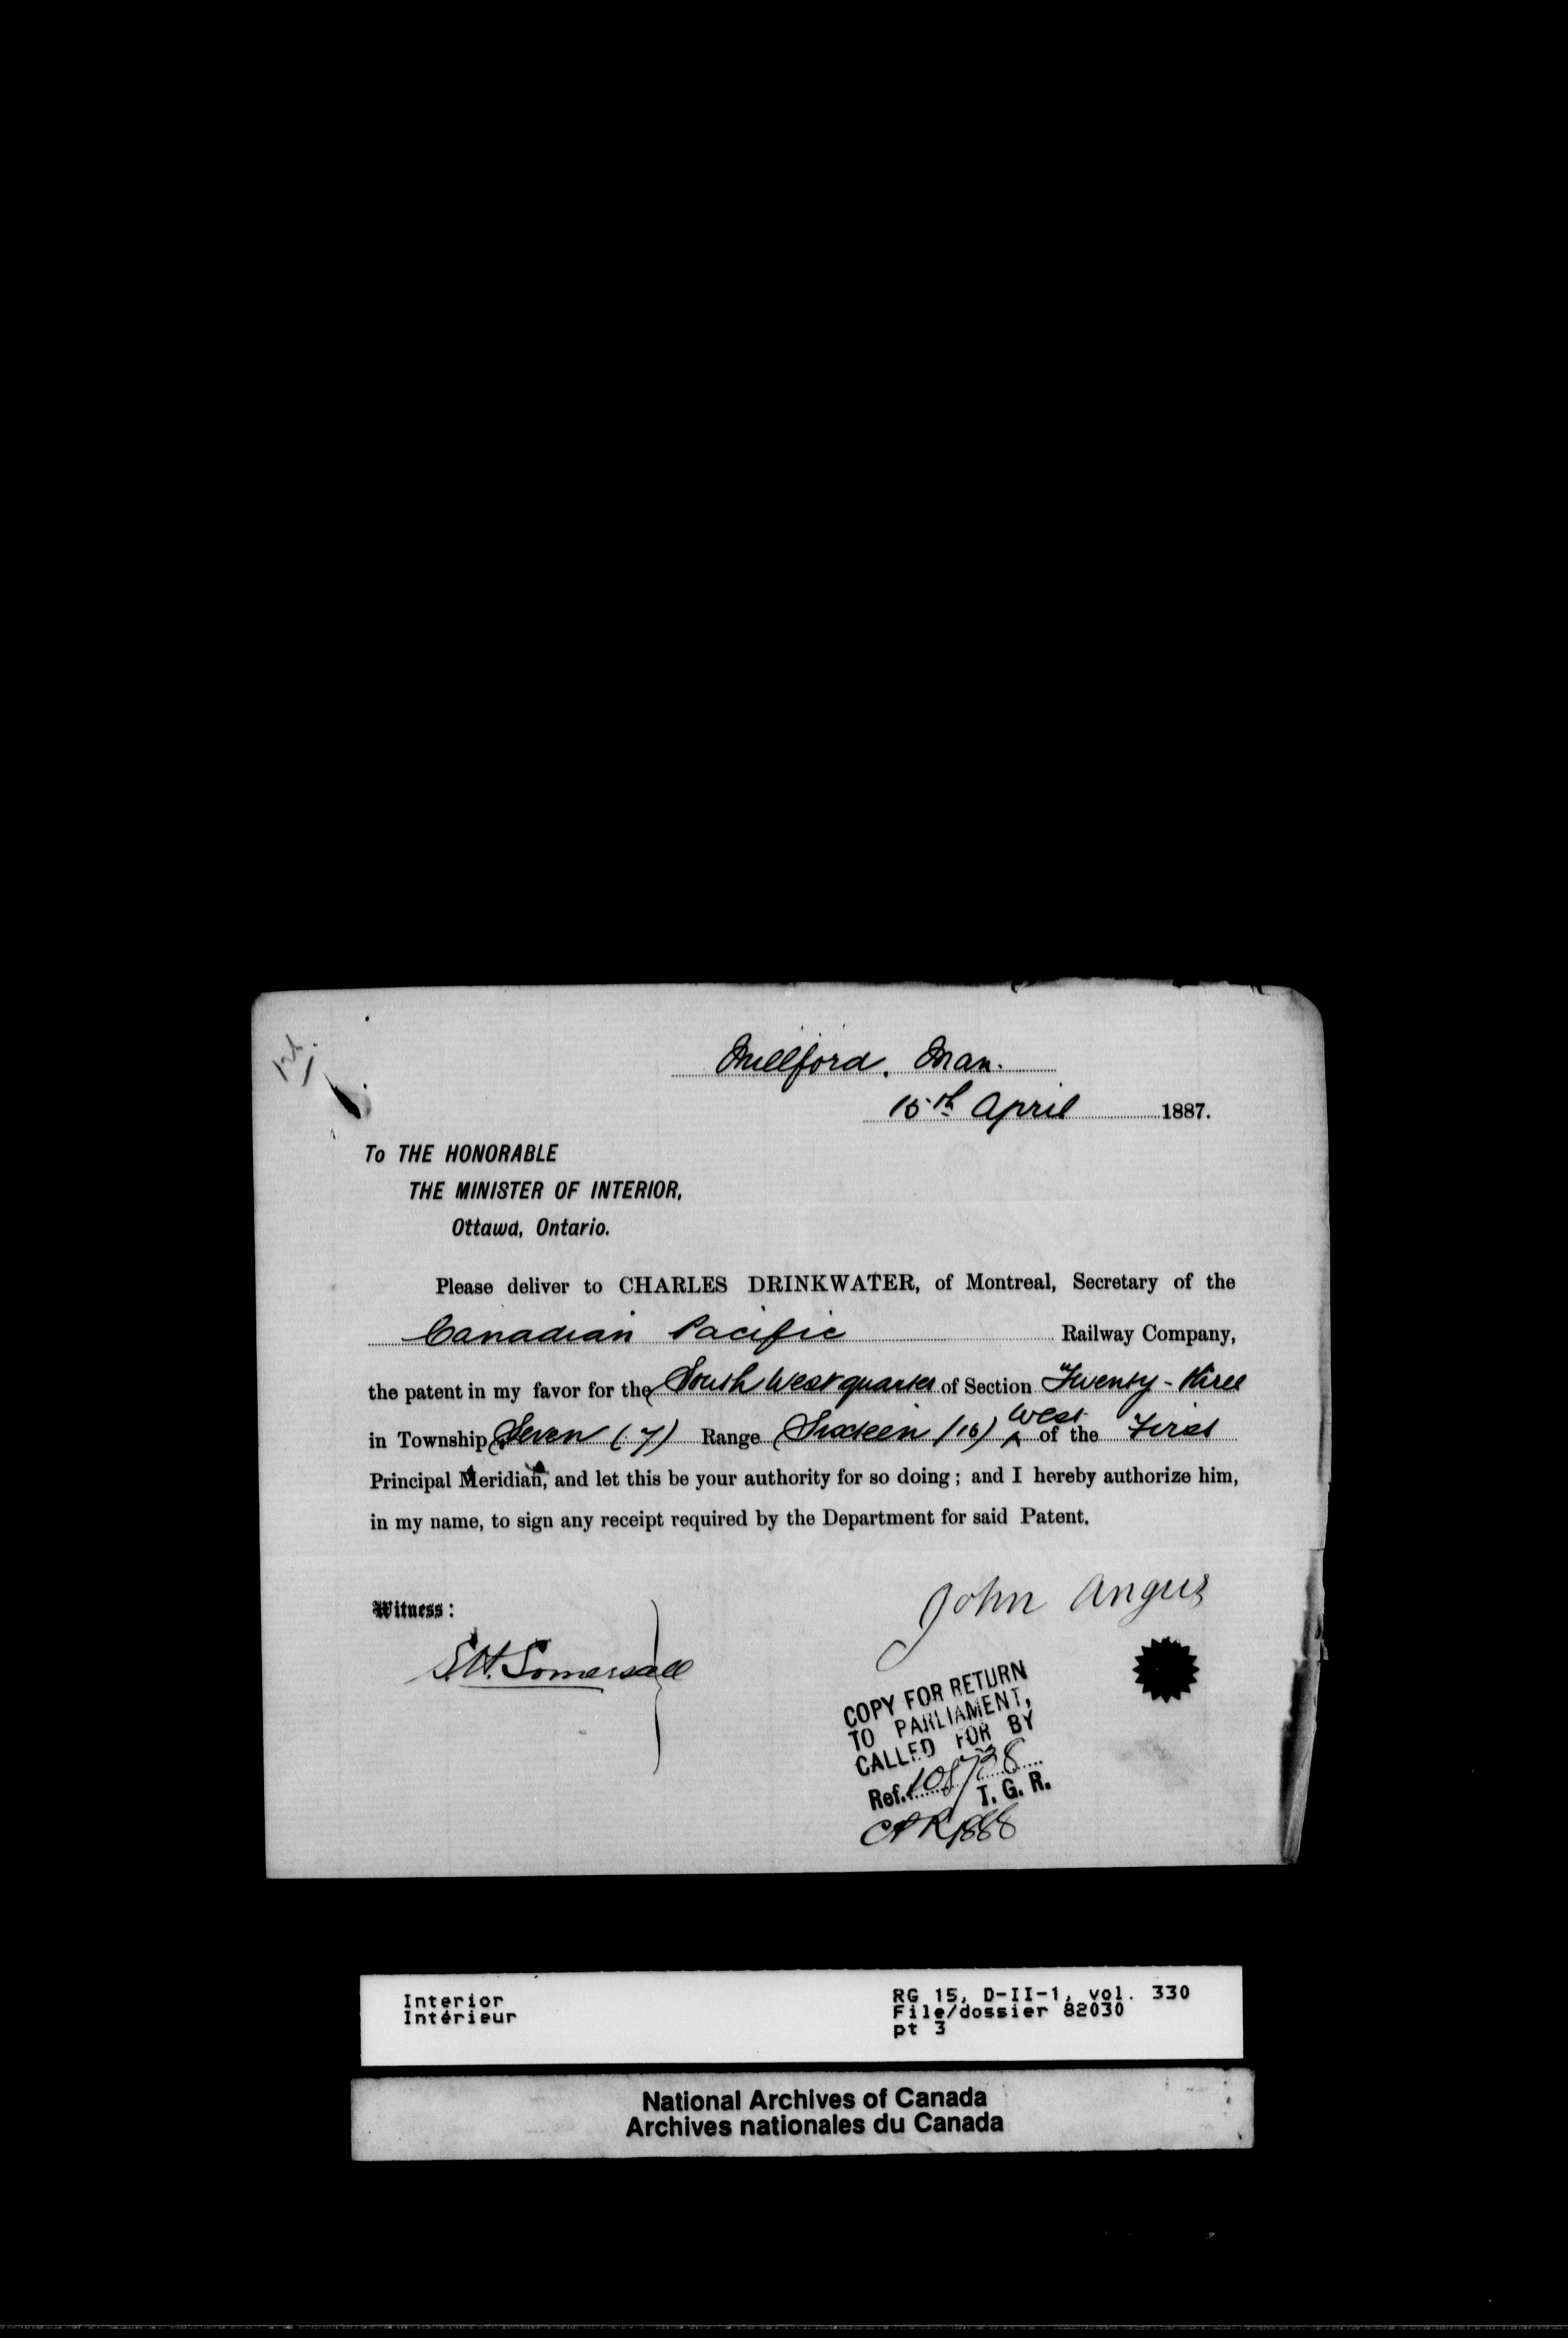 Millford, Man.
15th April 1887.
To THE HONORABLE
THE MINISTER OF INTERIOR,
Ottawa, Ontario.
Please deliver to CHARLES DRINKWATER, of Montreal, Secretary of the
Canadian Pacific Railway Company,
the patent in my favor for the South West quarter of Section Twenty-three
in Township Seven (7) Range Sixteen (16) West of the First
Principal Meridian, and let this be your authority for so doing ; and I hereby authorize him,
in my name, to sign any receipt required by the Department for said Patent.
John Angus
Witness :
S.H. Somersall
COPY FOR RETURN
TO PARLIAMENT,
CALLED FOR BY
Ref. 108738
T. G. R.
CPR 1888
Interior
Intérieur
RG 15, D-II-1, vol. 330
File/dossier 82030
pt 3
National Archives of Canada
Archives nationales du Canada